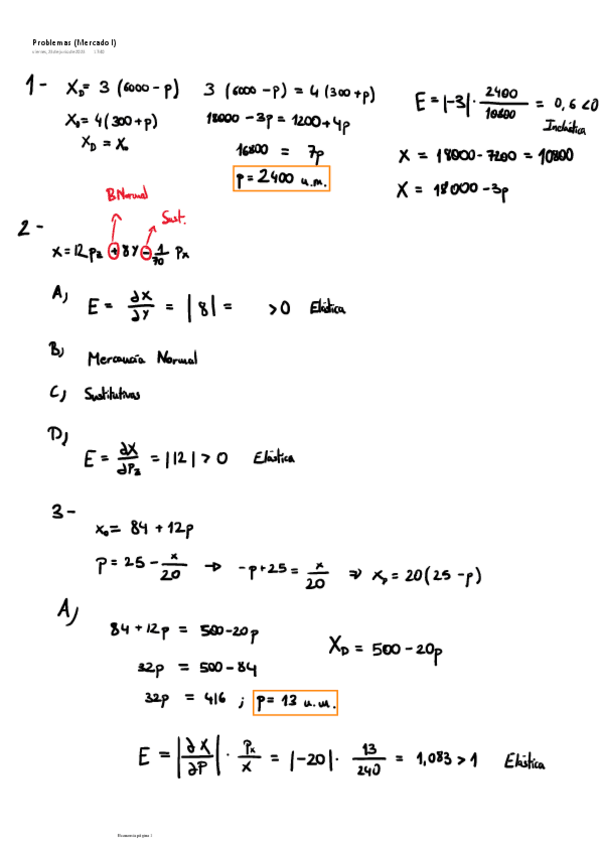 Problemas (Mercado I)
1- X_D = 3 (6000 - p)
X_o = 4(300 + p)
X_D = X_o
3 (6000 - p) = 4 (300 + p)
18000 - 3p = 1200 + 4p
16800 = 7p
p = 2400 u.m.
E = |-3| · 2400/10800 = 0,6 < 0
Inelástica
X = 18000 - 7200 = 10800
X = 18000 - 3p
B Normal
Sust.
2-
x = 12 p_z + 8Y - 1/70 p_x
A) E = ∂X/∂Y = |8| = > 0 Elástica
B) Mercancía Normal
C) Sustitutivas
D)
E = ∂X/∂P_z = |12| > 0 Elástica
3-
x_o = 84 + 12p
P = 25 - x/20 → -p + 25 = x/20 ⇒ x_D = 20(25 - p)
A)
84 + 12p = 500 - 20p
32p = 500 - 84
32p = 416 ; p = 13 u.m.
X_D = 500 - 20p
E = |∂X/∂P| · P_x/X = |-20| · 13/240 = 1,083 > 1 Elástica